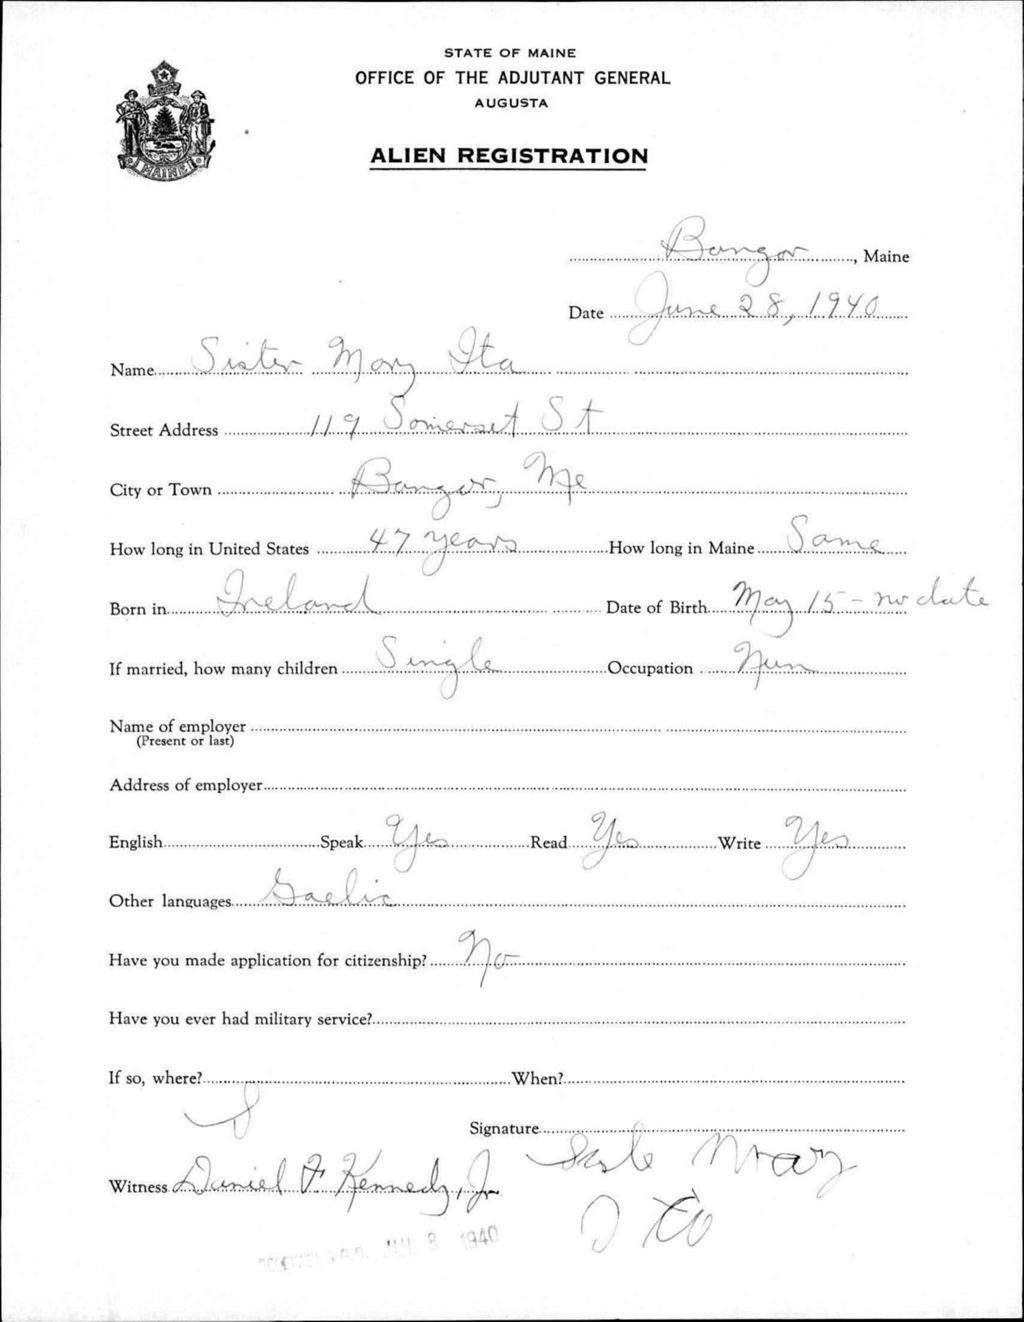 STATE OF MAINE
OFFICE OF THE ADJUTANT GENERAL
AUGUSTA
MAINE
ALIEN REGISTRATION
Bangor, Maine
Date June 28, 1940
Name Sister Mary Ita
Street Address 119 Somerset St
City or Town Bangor, Me
How long in United States 47 years How long in Maine Same
Born in Ireland Date of Birth May 15 - no date
If married, how many children Single Occupation Nun
Name of employer
(Present or last)
Address of employer
English Speak Yes Read Yes Write Yes
Other languages Gaelic
Have you made application for citizenship? No
Have you ever had military service?
If so, where? When?
S
Signature
Mary
Witness Daniel F Kennedy, Jr
Ita
RECEIVED A.G.O. JUL 8 1940